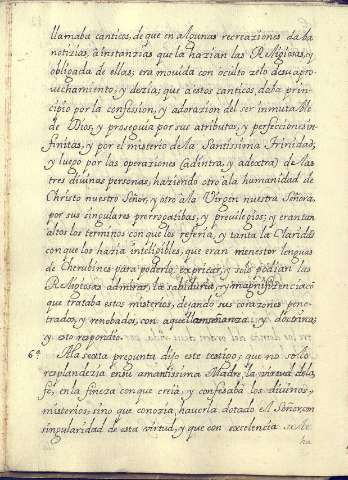 llamaba canticos, de que en algunas recreaziones daba
notizias, a instanzias que la hazian las Religiosas, y
obligada de ellas; era movida con oculto zelo de su apro
vechamiento; y dezia; que a estos canticos, daba prin
cipio por la confession, y adorazion del ser inmutable
de Dios, y proseguia por sus atributos, y perfecciones in
finitas, y por el misterio de la Santissima Trinidad;
y luego por las operaziones (ad intra, y ad extra) de las
tres divinas personas, haziendo otro a la humanidad de
Christo nuestro Señor, y otro a la Virgen nuestra Señora,
por sus singulares prerrogatibas, y previlegios; y eran tan
altos los terminos con que los referia, y tanta la claridad
con que los hazia inteligibles, que eran menester lenguas
de Cherubines para poderlo expricar, y solo podian las
Religiosas admirar, la sabiduria, y magnifizencia con
que trataba estos misterios, dejando sus corazones pene
trados, y renobados, con aquella enseñanza, y doctrina;
y esto respondio.
6ª A la sexta pregunta dijo este testigo, que no solo
resplandezia en su amantissima Madre, la virtud de la
fé, en la fineza con que creia, y confesaba los divinos
misterios; sino que conozia, haverla dotado el Señor, con
singularidad de esta virtud, y que con excelencia se le
ha